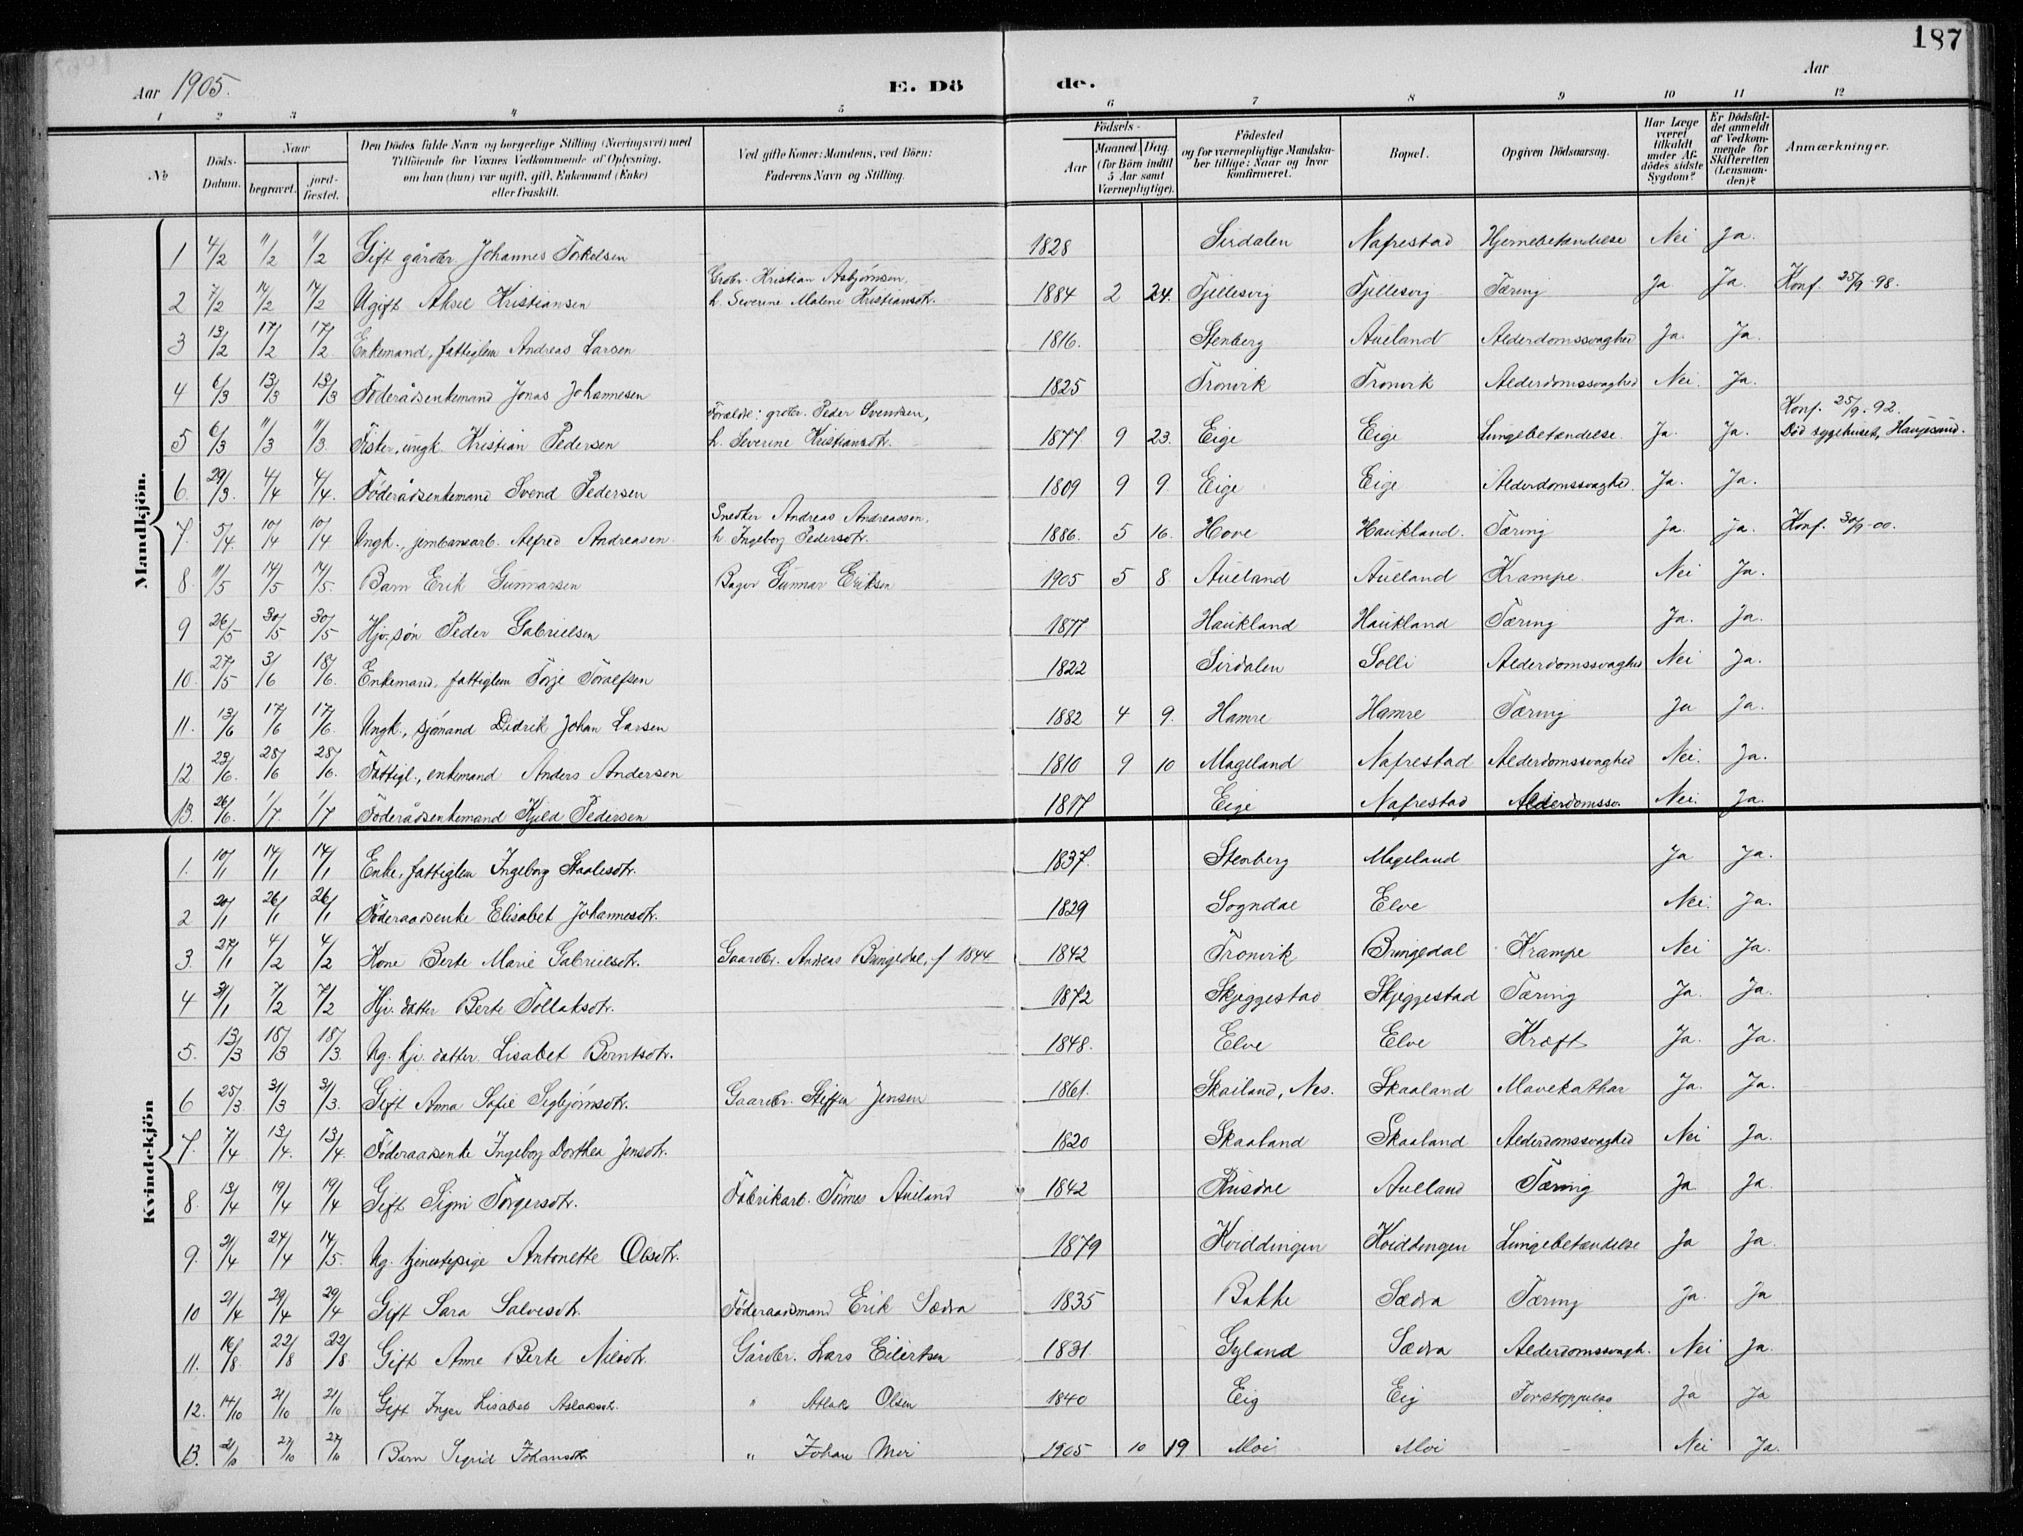 187
Aar 1905. E. Dö de. Aar
1 2 3 4 5 6 7 8 9 10 11 12
No
Döds-Datum.
Naar
begravet. jordfæstet.
Den Dödes fulde Navn og borgerlige Stilling (Næringsvei) med
Tilföiende for Voxnes Vedkommende af Oplysning,
om han (hun) var ugift, gift, Enkemand (Enke)
eller fraskilt.
Ved gifte Koner: Mandens, ved Börn:
Faderens Navn og Stilling.
Födsels-
Aar Maaned Dag
(for Börn indtil 5 Aar samt Værnepligtige).
Födested
og for værnepligtige Mandskaber tillige: Naar og hvor konfirmeret.
Bopæl.
Opgiven Dödsaarsag.
Har Læge været tilkaldt under Afdödes sidste Sygdom?
Er Dödsfaldet anmeldt af Vedkommende for Skifteretten (Lensmanden)?
Anmærkninger.
Mandkjön.
1 4/2 11/2 11/2 Gift gårdbr. Johannes Torkelsen 1828 Sirdalen Nafrestad Hjernebetændelse Nei Ja.
Grdbr. Kristian Asbjørnsen,
2 7/2 17/2 17/2 Ugift Aksel Kristiansen h. Severine Malene Kristiansdtr. 1884 2 24. Fjellesvig Fjellesvig Tæring Ja Ja. Konf. 25/9-98.
3 13/2 17/2 17/2 Enkemand, fattiglem Andreas Larsen 1816. Stenberg Aueland Alderdomssvaghed Ja. Ja.
4 6/3 13/3 13/3 Föderådsenkemand Jonas Johannesen 1825 Tronvik Tronvik Alderdomssvaghed Nei. Ja.
Forældre: grdbr. Peder Svendsen, Konf. 25/9.92.
5 6/3 11/3 11/3. Fisker, ungk. Kristian Pedersen h. Severine Kristiansdtr. 1877 9 23. Eige Eige Lungebetændelse. Ja. Ja. Død sygehuset, Haugesund.
6. 29/3. 4/4 4/4. Föderådsenkemand Svend Pedersen 1809 9 9. Eige Eige Alderdomssvaghed. Ja. Ja.
Snedker Andreas Andreassen,
7. 5/4. 10/4 10/4 Ungk., jernbanearb. Alfred Andreasen h Ingeborg Pedersdtr. 1886. 5 16. Hove Haukland. Tæring Ja. ja. Konf. 30/9-00.
8. 11/5 17/5 17/5. Barn Erik Gunnarsen Bager Gunnar Eriksen 1905 5 8. Aueland Aueland Krampe. Nei Ja.
9 26/5 30/5 30/5 Hjv. søn Peder Gabrielsen 1877 Haukland Haukland Tæring Ja. Ja.
10. 27/5 3/6 18/6. Enkemand, fattiglem Torje Toralfsen 1822 Sirdalen Solli Alderdomssvaghed Nei Ja.
11. 13/6 17/6 17/6. Ungk., sjömand Didrik Johan Larsen 1882 4 9. Hamre Hamre Tæring Ja Ja.
12 23/6. 28/6 28/6. Fattigl., enkemand Anders Andersen 1810 9 10 Mageland Nafrestad Alderdomssvaghed Nei. Ja.
13. 26/6. 1/7. 1/7 Föderådsenkemand Kjeld Pedersen 1817 Eige Nafrestad Alderdomssv. Nei. Ja.
Kvindekjön
1. 10/1 14/1 14/1 Enke, fattiglem Ingeborg Staalesdtr. 1837. Stenberg Mageland Ja Ja.
2 20/1 26/1 26/1 Föderaadsenke Elisabet Johannesdtr. 1829 Sogndal Elve Nei. Ja.
3. 27/1 4/2 4/2 Kone Berte Marie Gabrielsdtr. Gaardbr. Andreas Bungedal, f 1844 1842 Tronvik Bungedal Krampe Nei Ja.
4 31/1 7/2 7/2 Hjv. datter Berte Tollaksdtr. 1872 Skjeggestad Skjeggestad Tæring Ja. Ja.
5. 13/3 18/3 18/3. Ug. hjv. datter Lisabet Berntsdtr. 1848. Elve Elve Kræft Ja. Ja.
6 25/3 31/3 31/3. Gift Anna Sofie Sigbjørnsdtr. Gaardbr. Steffen Jensen 1861. Skailand, Nes. Skaaland Mavekathar Ja. Ja.
7. 7/4 13/4. 13/4. Föderaadsenke Ingeborg Dorthea Jensdtr. 1820 Skaaland Skaaland Alderdomssvaghed Nei Ja.
8. 13/4 19/4 19/4 Gift Signi Torgersdtr. Fabrikarb. Tönnes Aueland 1842 Risdal Aueland Tæring Ja Ja.
9. 21/4 27/4 14/5. Ug. tjenestepige Antonette Olsdtr. 1879 Kviddingen Kviddingen Lungebetændelse Ja Ja.
10 21/4 29/4 29/4 Gift Sara Salvesdtr. Föderaadsmand Erik Sædra 1835 Bakke Sædra Tæring Ja. Ja
11. 16/8. 22/8 22/8. Gift Anne Berte Nilsdtr. Gårdbr. Lars Eilertsen 1831. Gyland Sædra Alderdomssvagh. Nei Ja.
12. 14/10 21/10 21/10 Gift Inger Lisabet Aslaksdtr. " Atlak Olsen 1840 Eig Eig Forstoppelse Ja Ja
13. 21/10 27/10 27/10 Barn Sigrid Johansdtr " Johan Moi 1905 10 19 Moi Moi - Nei Ja.